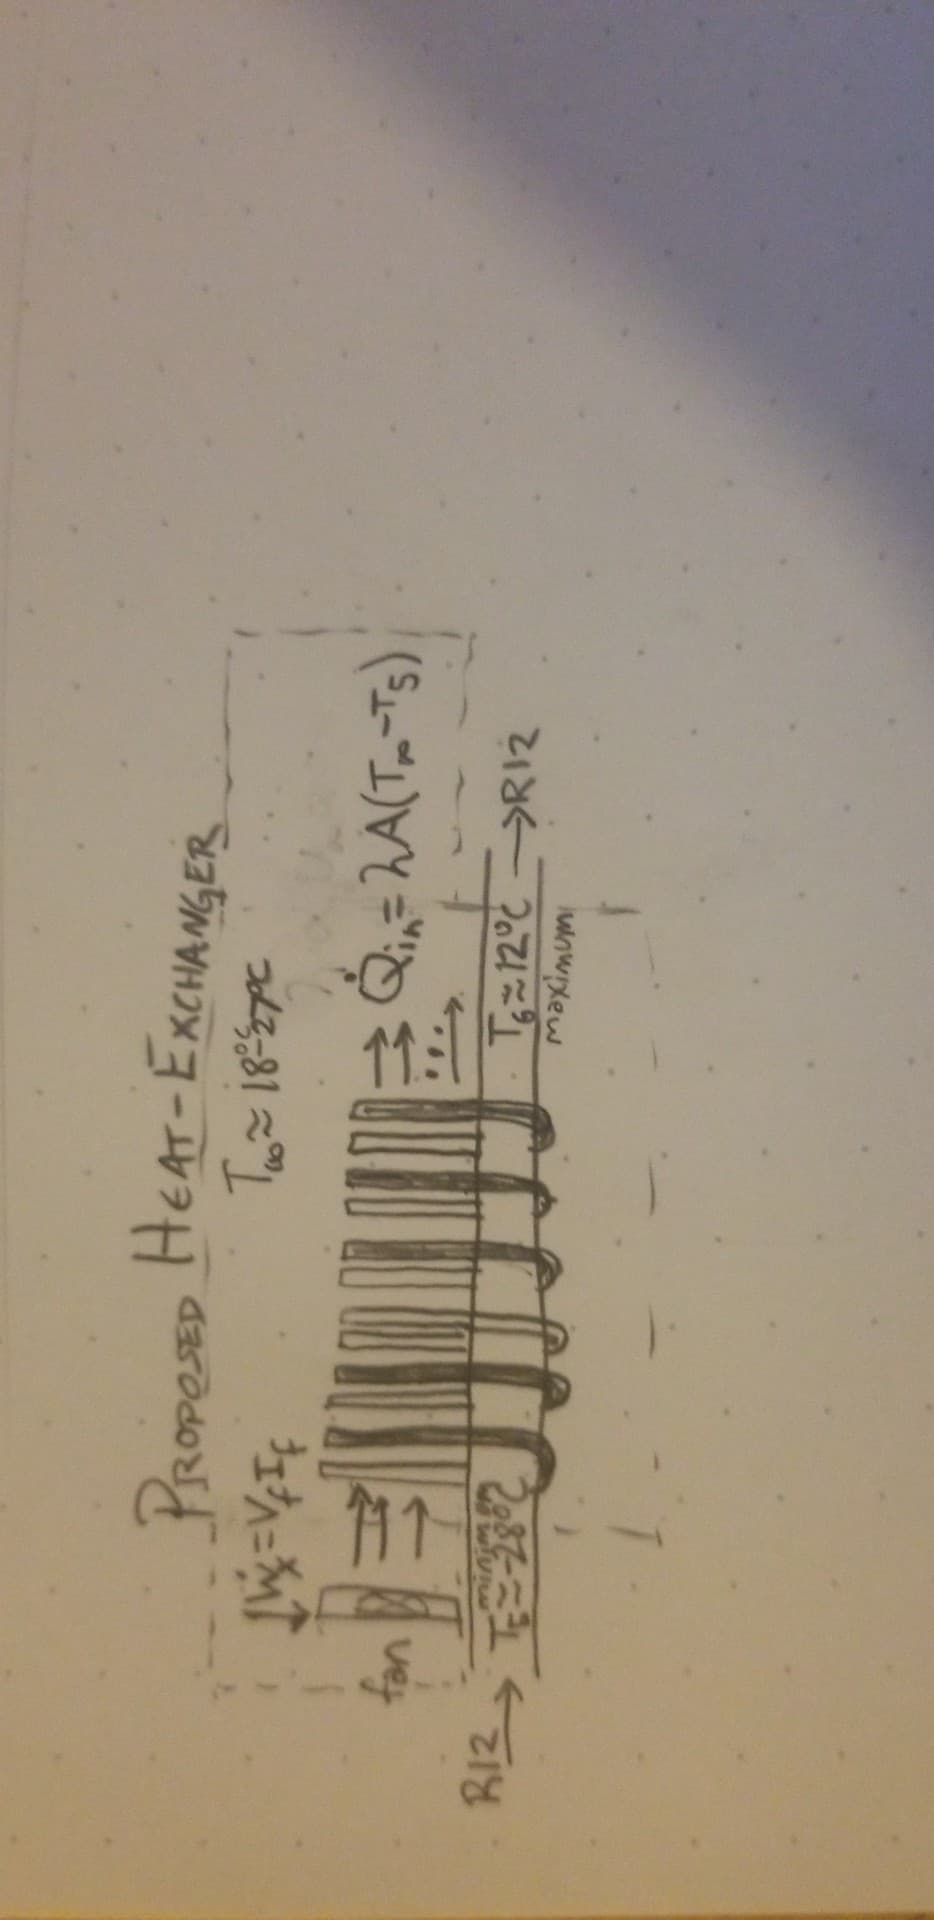 PROPOSED HEAT-EXCHANGER
T∞≈18°C-27°C
Ẇx=VfIf
fan
Q̇in=hA(T∞-T5)
R12
minimum
T5≈-28°C
T6≈12°C
R12
maximum